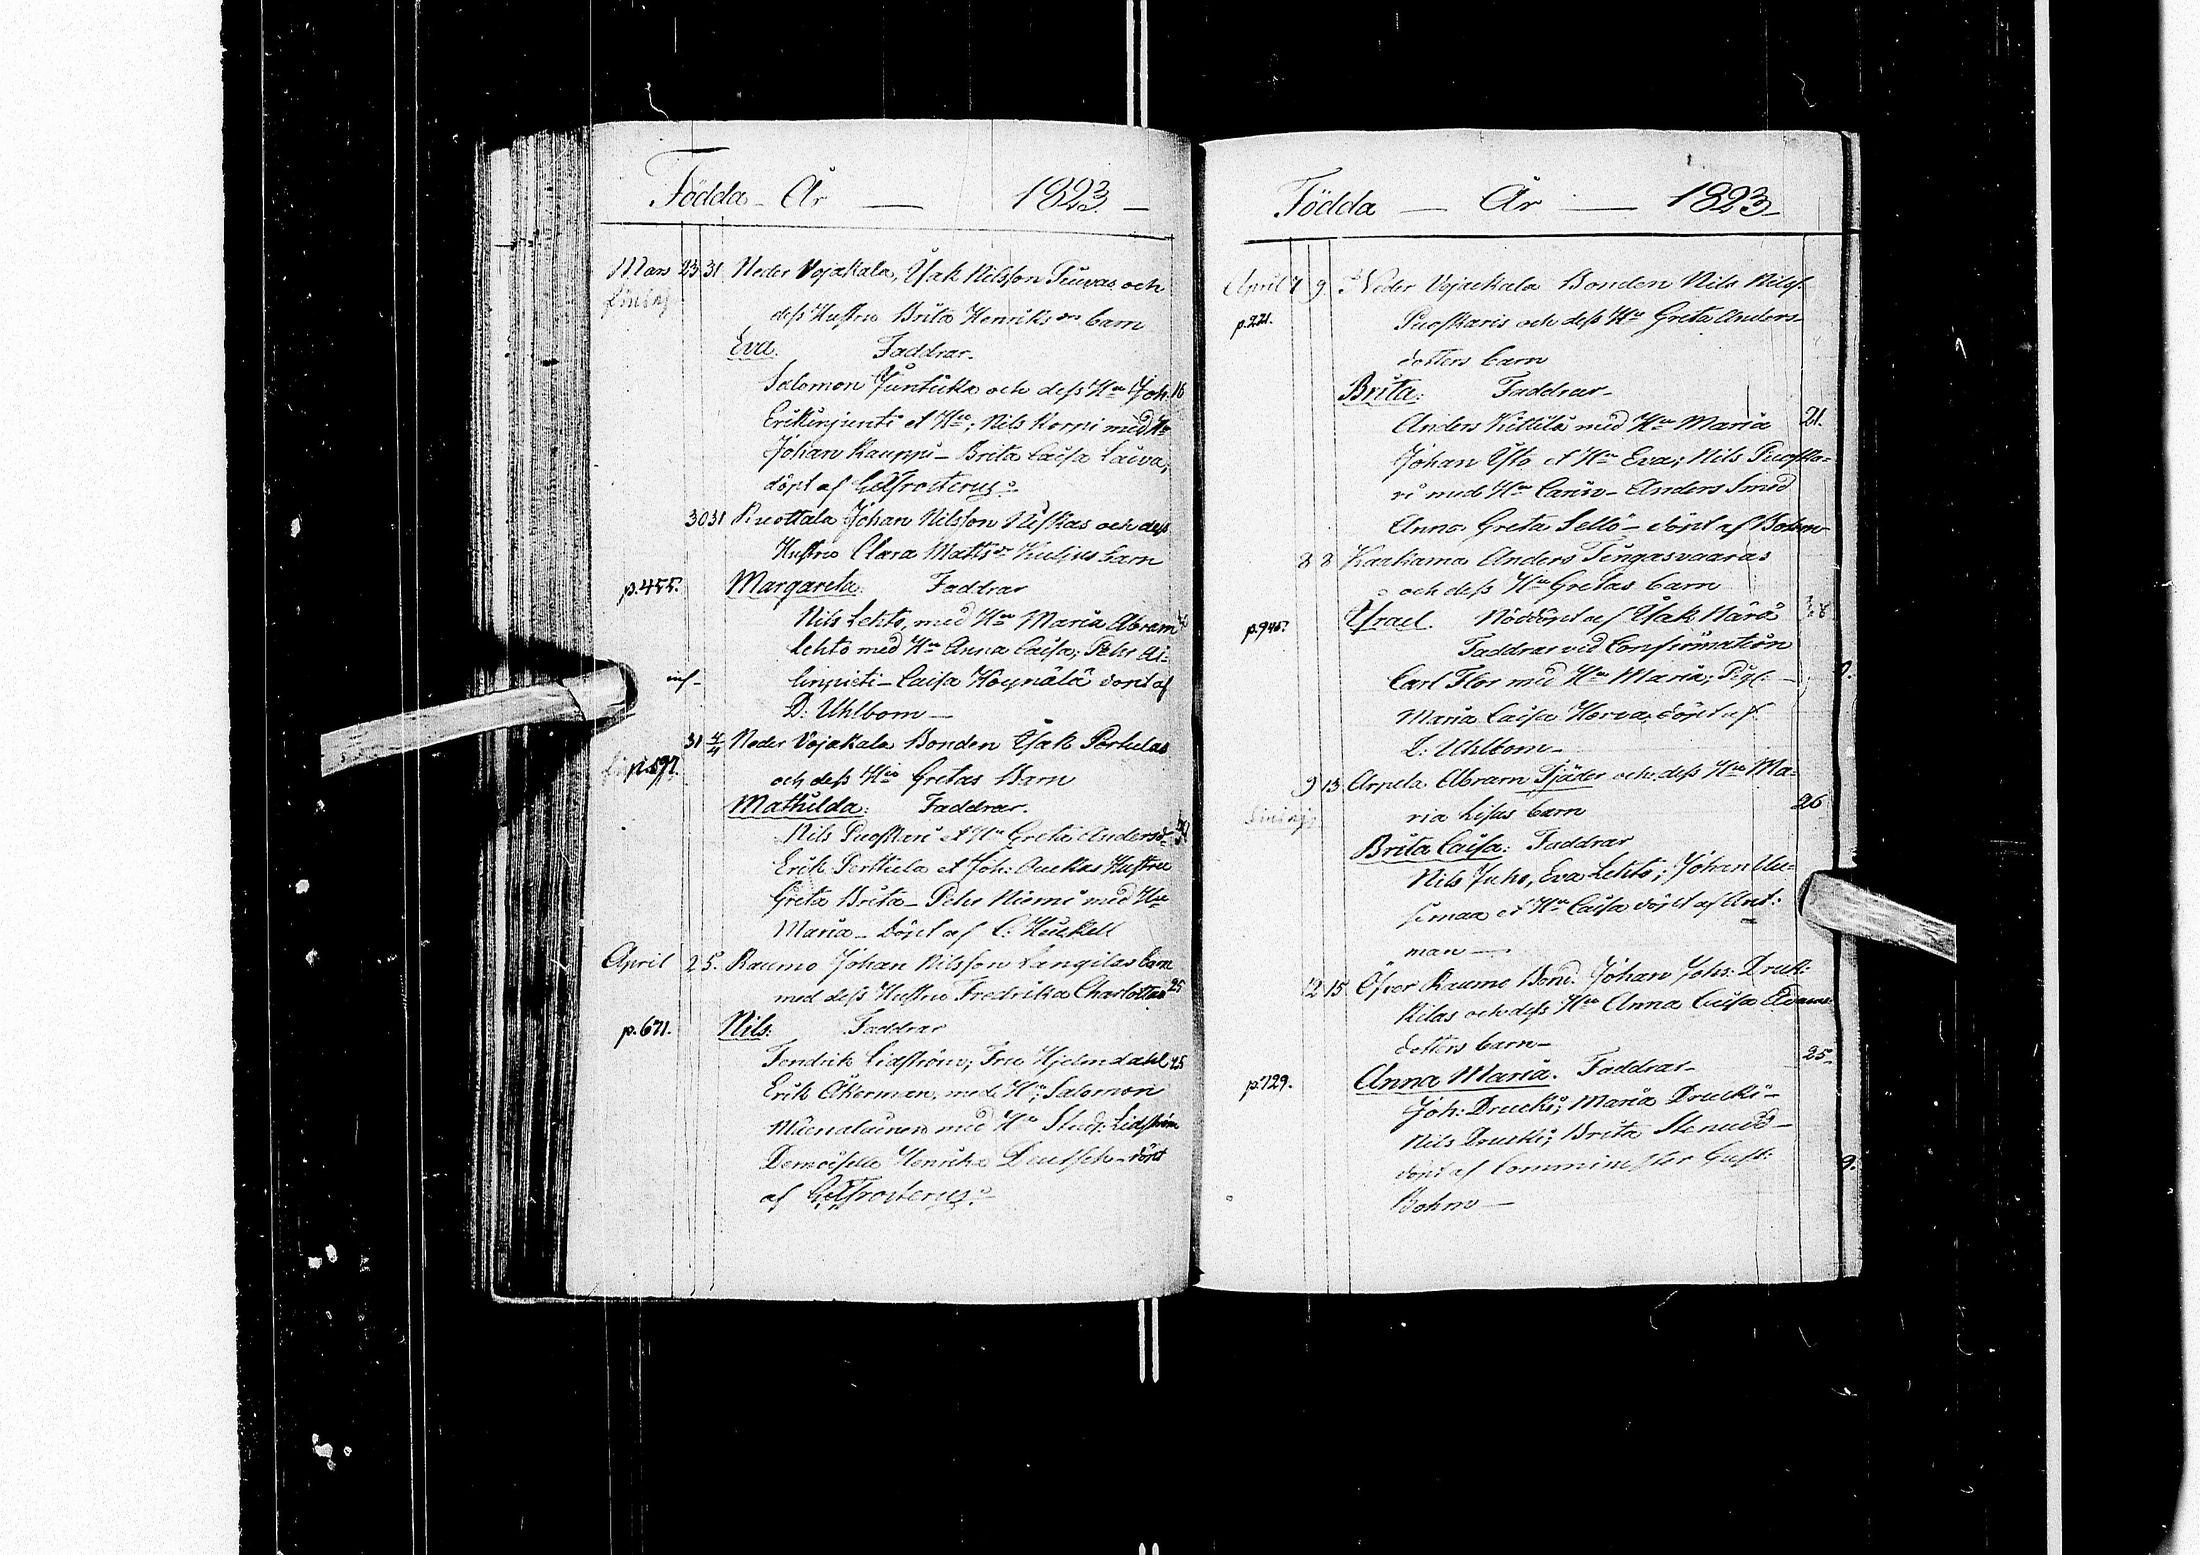 Födda - År — 1823 —
Mars 23 31 Neder Vojakala, Isak Nilsson Tiuvas och
dess Hustru Brita Henriks dr barn
Eva. Faddrar.
Salomon Juntikka och dess Hu Joh: 16
Erikinjunti et Hu; Nils Korpi med Hu
Johan Kauppi - Brita Caisa Laiva,
döpt af
30 31 Ruottala Johan Nilsson Niskas och dess
Hustru Clara Matts dr barn
p. 455. Margareta. Faddrar
Nils Lehto, med Hu Maria Abram
Lehto med Hu Anna Caisa; Pehr Ai-
linpieti - Caisa Höynälä döpt af
D: Uhlbom —
31 4/4 Neder Vojakala Bonden Isak Pertulas
p. 597.
och dess Hus Gretas Barn
Mathilda: Faddrar.
Nils Puoskari et Hu Greta Andersd-
Erik Perttula et Joh: Hustru
Greta Brita - Pehr Niemi med Hu
Maria - döpt af C: Heickell
April 2 5. Raumo Johan Nilsson Langilas barn
med dess Hustru Fredrika Charlottas 25
p. 671. Nils: Faddrar
Fendrik Lidström; Fru Hjelmdahl 25
Erik Åkerman med Hu; Salomon
med Hu Stud: Lidström
Demoiselle Henrika döpt
af
Födda — År — 1823 —
April 7 9 Neder Vojackala Bonden Nils Nilss:
p. 221. Puoskaris och dess Hu Greta Anders-
dotters barn
Brita: Faddrar -
Anders Kittilä med Hu Maria 21.
Johan Isto et Hu Eva; Nils Puoska-
ri med Hu Carin - Anders Smed
Anna Greta Sello - döpt af Bohm
8 8 Karhama Anders Tingasvaaras
och dess Hu Gretas barn
p. 945. Israel. Nöddöpt af Isak Närä
Faddrar vid Confirmation
Carl Flor med Hu Maria; Pig:
Maria Caisa Herva, döpt af
D: Uhlbom -
9 13 Arpela Abram Tjäder och dess Hu Ma-
ria Lisas barn 26
Brita Caisa: Faddrar
Nils Juho, Eva Lehto; Johan Uu-
simaa et Hu Caisa döpt af Ant:
man —
12 15 Öfver Raumo Bond. Johan Johs: Druck-
kilas och dess Hu Anna Caisa Adams-
dotters barn - 25.
p. 129. Anna Maria. Faddrar -
Joh: Drucki; Maria Drucki -
Nils Drucki; Brita Stenudd -
döpt af Comminister Gust:
Bohm —